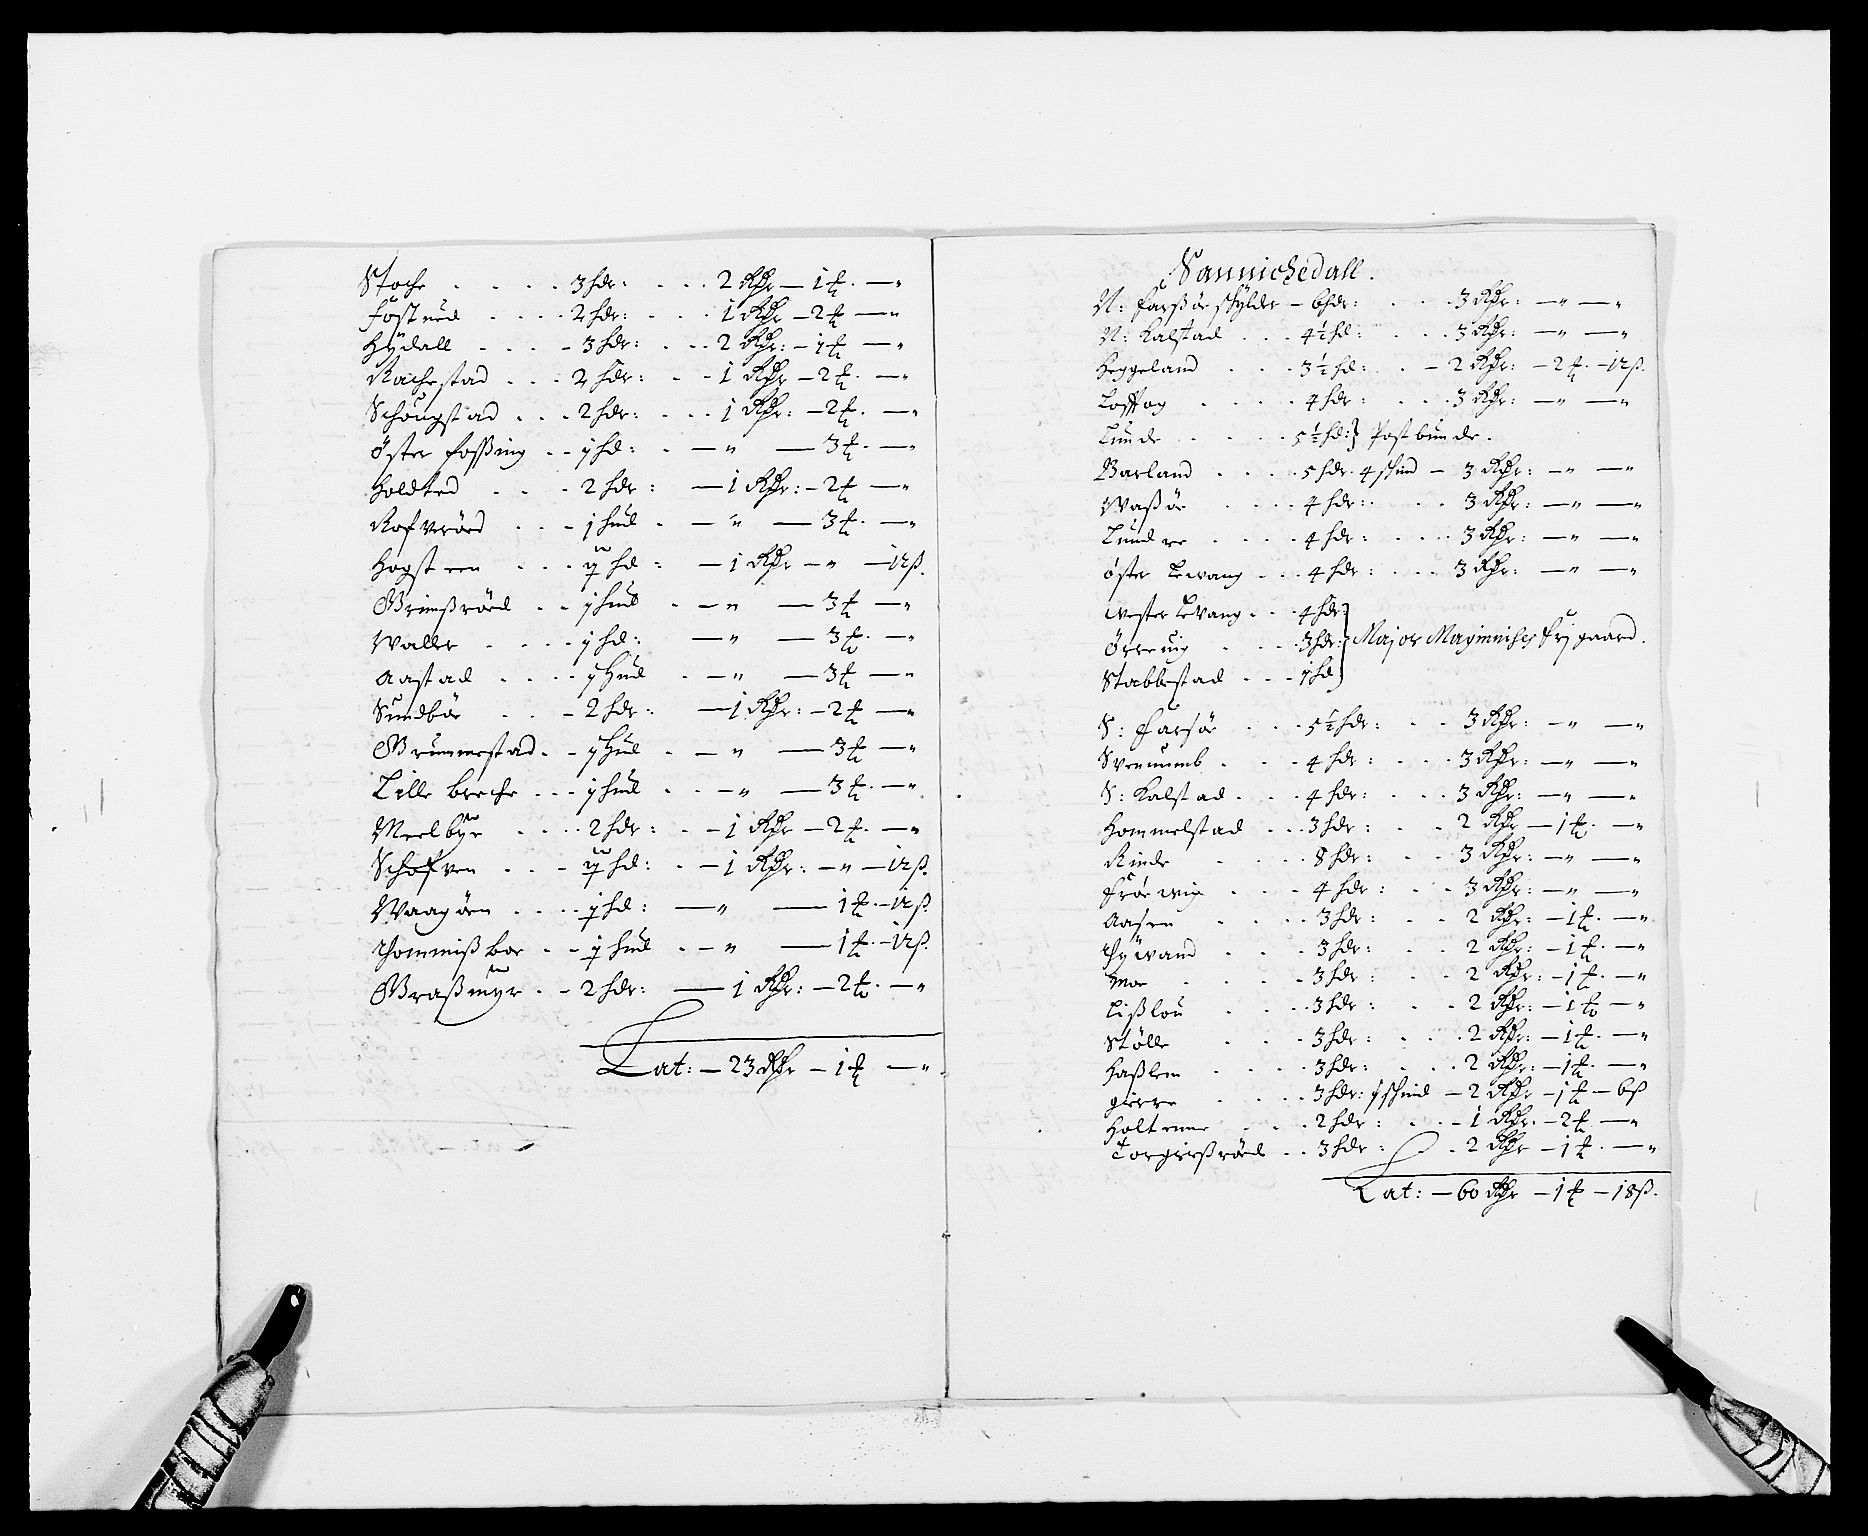 Stoche . . . . 3 hdr: . . . 2 Rdr — 1 ℔. — „
Fostued . . . . 2 hdr: . . . 1 Rdr — 2 ℔ — „
Hÿdall . . . . 3 hdr: . . . 2 Rdr: — 1 ℔ — „
Rachestad . . . 2 hdr: . . 1 Rdr — 2 ℔ — „
Schougstad . . . 2 hdr: . . . 1 Rdr: — 2 ℔. — „
Öster fossing . . 1 hd: . — „ — 3 ℔. — „
Holdted . . . 2 hdr: — 1 Rdr: — 2 ℔ — „
Rafveröed . . . 1 hud . — „ — 3 ℔. — „
Hogsteen . . . hd: — 1 Rdr — „ — 12 ß.
Grimßröed . . 1 hud . — „ — 3 ℔ — „
Walle . . . . 1 hd: — „ — 3 ℔. — „
Aastad . . . . 1 Hud . — „ — 3 ℔ — „
Sundböe . . . 2 hdr: — 1 Rdr: — 2 ℔ — „
Grummestad . . 1 Hud . — „ — 3 ℔ — „
Lille breche . . . 1 hud . . — „ — 3 ℔. — „
Meelbÿe . . . . 2 hdr: . — 1 Rdr — 2 ℔. — „
Schofven . . . hd: . — 1 Rdr: — „ — 12 ß.
Waagöen . . . . hd: — „ — 1 ℔. — 12 ß.
Thommißboe . . hud . — „ — 1 ℔. — 12 ß.
Graßmÿr . . 2 hdr: — 1 Rdr: — 2 ℔. — „
Lat: — 23 Rdr — 1 ℔ — „
Sannichedall.
N: farßöe schÿlder — 6 hdr: . . . 3 Rdr: — „ — „
N: Kalstad . . . 4½ hd: . . . 3 Rdr: — „ — „
Heggeland . . . 3½ hd: . — 2 Rdr: — 2 ℔. — 12 ß.
Lofftog . . . . 4 hdr: . . . 3 Rdr: — „ — „
Lunde . . . . 5½ hd:} Postbunde.
Barland . . . . 5 hdr. 4 schind — 3 Rdr: — „ — „
Waßöe . . . . 4 hdr: . . . 3 Rdr: — „ — „
Lundere . . . . 4 hdr: . . . . 3 Rdr: — „ — „
öster Levang . . . 4 hdr: . . . 3 Rdr: — „ — „
wester Levang . . . 4 hdr:
Örevig . . . . 3 hdr: } Major Magnnises frj gaard.
Stabbestad . . . 1 hd
S: farsöe . . . 5½ hdr: . . 3 Rdr: — „ — „
Svenumb . . . . 4 hdr: . . . 3 Rdr: — „ — „
S: Kalstad . . . 4 hdr: . . . 3 Rdr: — „ — „
Hommelstad . . . 3 hdr: . . . 2 Rdr — 1 ℔. — „
Rinde . . . . 8 hdr: . . . 3 Rdr: — „ — „
Fröevig . . . . 4 hdr: . . . 3 Rdr: — „ — „
Aasen . . . . 3 hdr: . . . 2 Rdr: — 1 ℔. — „
Thÿvand . . . . 3 hdr: . . . 2 Rdr: — 1 ℔. — „
Moe . . . . 3 hdr: . . . 2 Rdr: — 1 ℔. — „
Lißlou . . . . 3 hdr: . . . 2 Rdr: — 1 ℔ — „
Stölle . . . . 3 hdr: . . . . 2 Rdr: — 1 ℔. — „
Haßlem . . . . 3 hdr: . . . . 2 Rdr: — 1 ℔. — „
gierre . . . . 3 hdr: 1 schind — 2 Rdr — 1 ℔ — 6 ß
Holtenne . . . 2 hdr: . . . 1 Rdr. — 2 ℔. — „
Torgierßröed . . 3 hdr: . . 2 Rdr — 1 ℔. — „
Lat: — 60 Rdr — 1 ℔ — 18 ß.